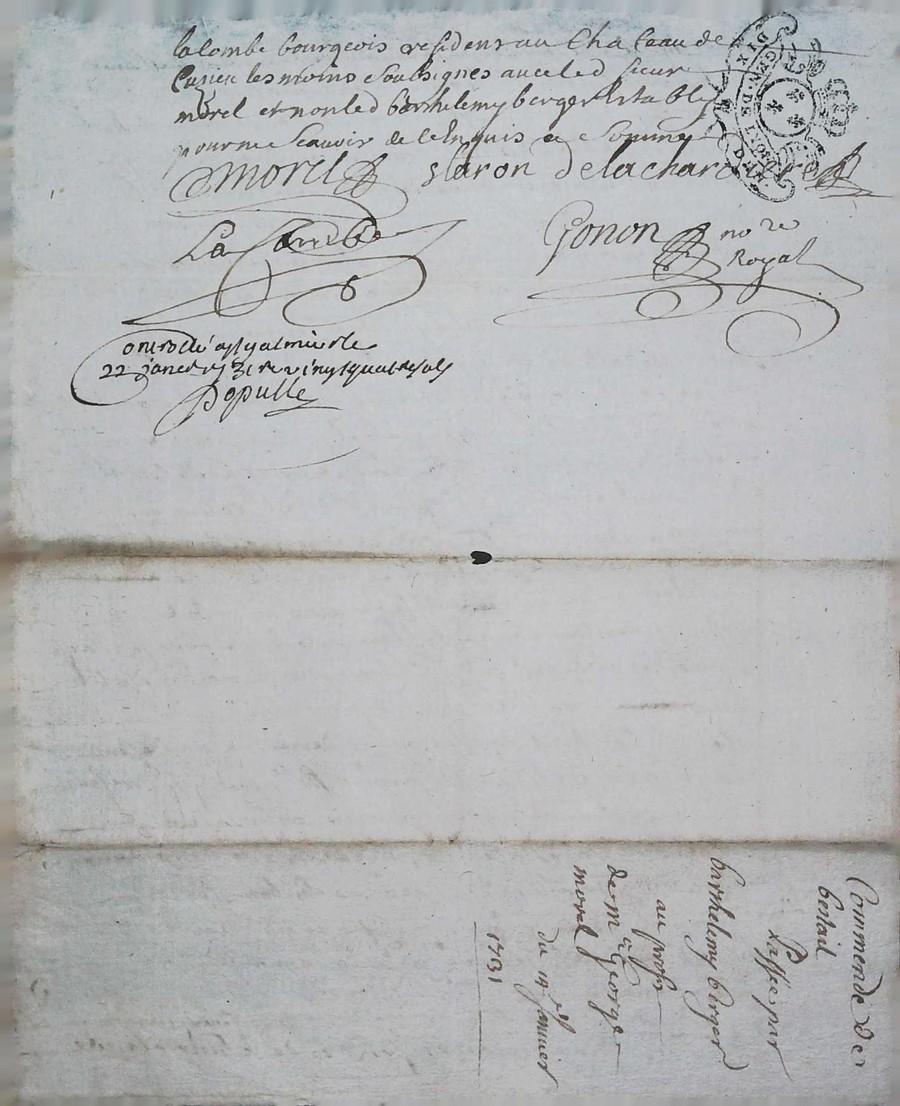 lacombe bourgeois residens au Chateau de
Cuzieu les moins Soubsignes avec led sieur
morel et non led barthelemy berger Establis
pour ne scavoir de ce Enquis et Somme
Morel Slaron delacharo
La Combe
Gonon no re
Royal
Controllé a St galmier le
22 janer 1731 re vingt quatre sols
Populle
GEN. DE LYON
DIX
Commende de
bestail
Passée par
barthelemy berger
au profit
de Mr george
morel
du 19 Janvier
1731